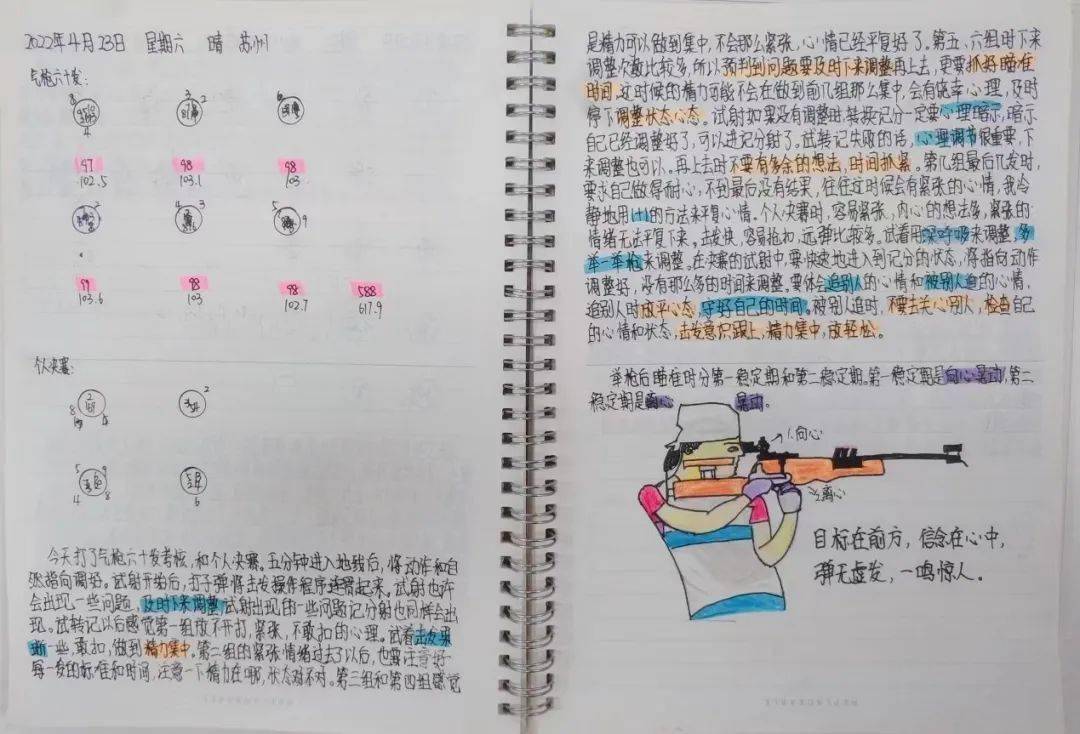 2022年4月23日 星期六 晴 苏州
气枪六十发:
8
4
3 2
6
97 98 98
102.5 103.1 103
2
4 3
5 9
99 98 98 588
103.6 103 102.7 617.9
个人决赛:
2
8 4
2
5 9
4 8
6
今天打了气枪六十发考核,和个人决赛。五分钟进入地线后,将动作和自
然指向调好。试射开始后,打子弹将击发操作程序连贯起来。试射也许
会出现一些问题,及时下来调整试射出现的一些问题记分射也同样会出
现。试转记以后感觉第一组放不开打,紧张,不敢扣的心理。试着击发果
断一些,敢扣,做到精力集中。第二组的紧张情绪过去了以后,也要注意好
每一发的标准和时间,注意一下精力在哪,状态对不对。第三组和第四组感觉
是精力可以做到集中,不会那么紧张,心情已经平复好了。第五、六组时下来
调整次数比较多,所以预判到问题要及时下来调整再上去,更要抓好瞄准
时间,这时候的精力可能不会在做到前几组那么集中,会有侥幸心理,及时
停下调整状态心态。试射如果没有调整时,转换记分一定要心理暗示,暗示
自己已经调整好了,可以进记分射了。试转记失败的话,心理调节很重要,下
来调整也可以。再上去时不要有多余的想法,时间抓紧。第几组最后几发时,
要求自己做得耐心,不到最后没有结果,往往这时候会有紧张的心情,我冷
静地用1+1的方法来平复心情。个人决赛时,容易紧张,内心的想法多,紧张的
情绪无法平复下来。击发快,容易抢扣,远弹比较多。试着用深呼吸来调整,多
举一举枪来调整。在决赛的试射中,要快速地进入到记分的状态,将指向动作
调整好,没有那么多的时间来调整。要体会追别人的心情和被别人追的心情,
追别人时放平心态,守好自己的时间。被别人追时,不要去关心别人,检查自己
的心情和状态,击发意识跟上,精力集中,放轻松。
举枪后瞄准时分第一稳定期和第二稳定期。第一稳定期是向心晃动,第二
稳定期是离心晃动。
1.向心
2.离心
目标在前方,信念在心中,
弹无虚发,一鸣惊人。